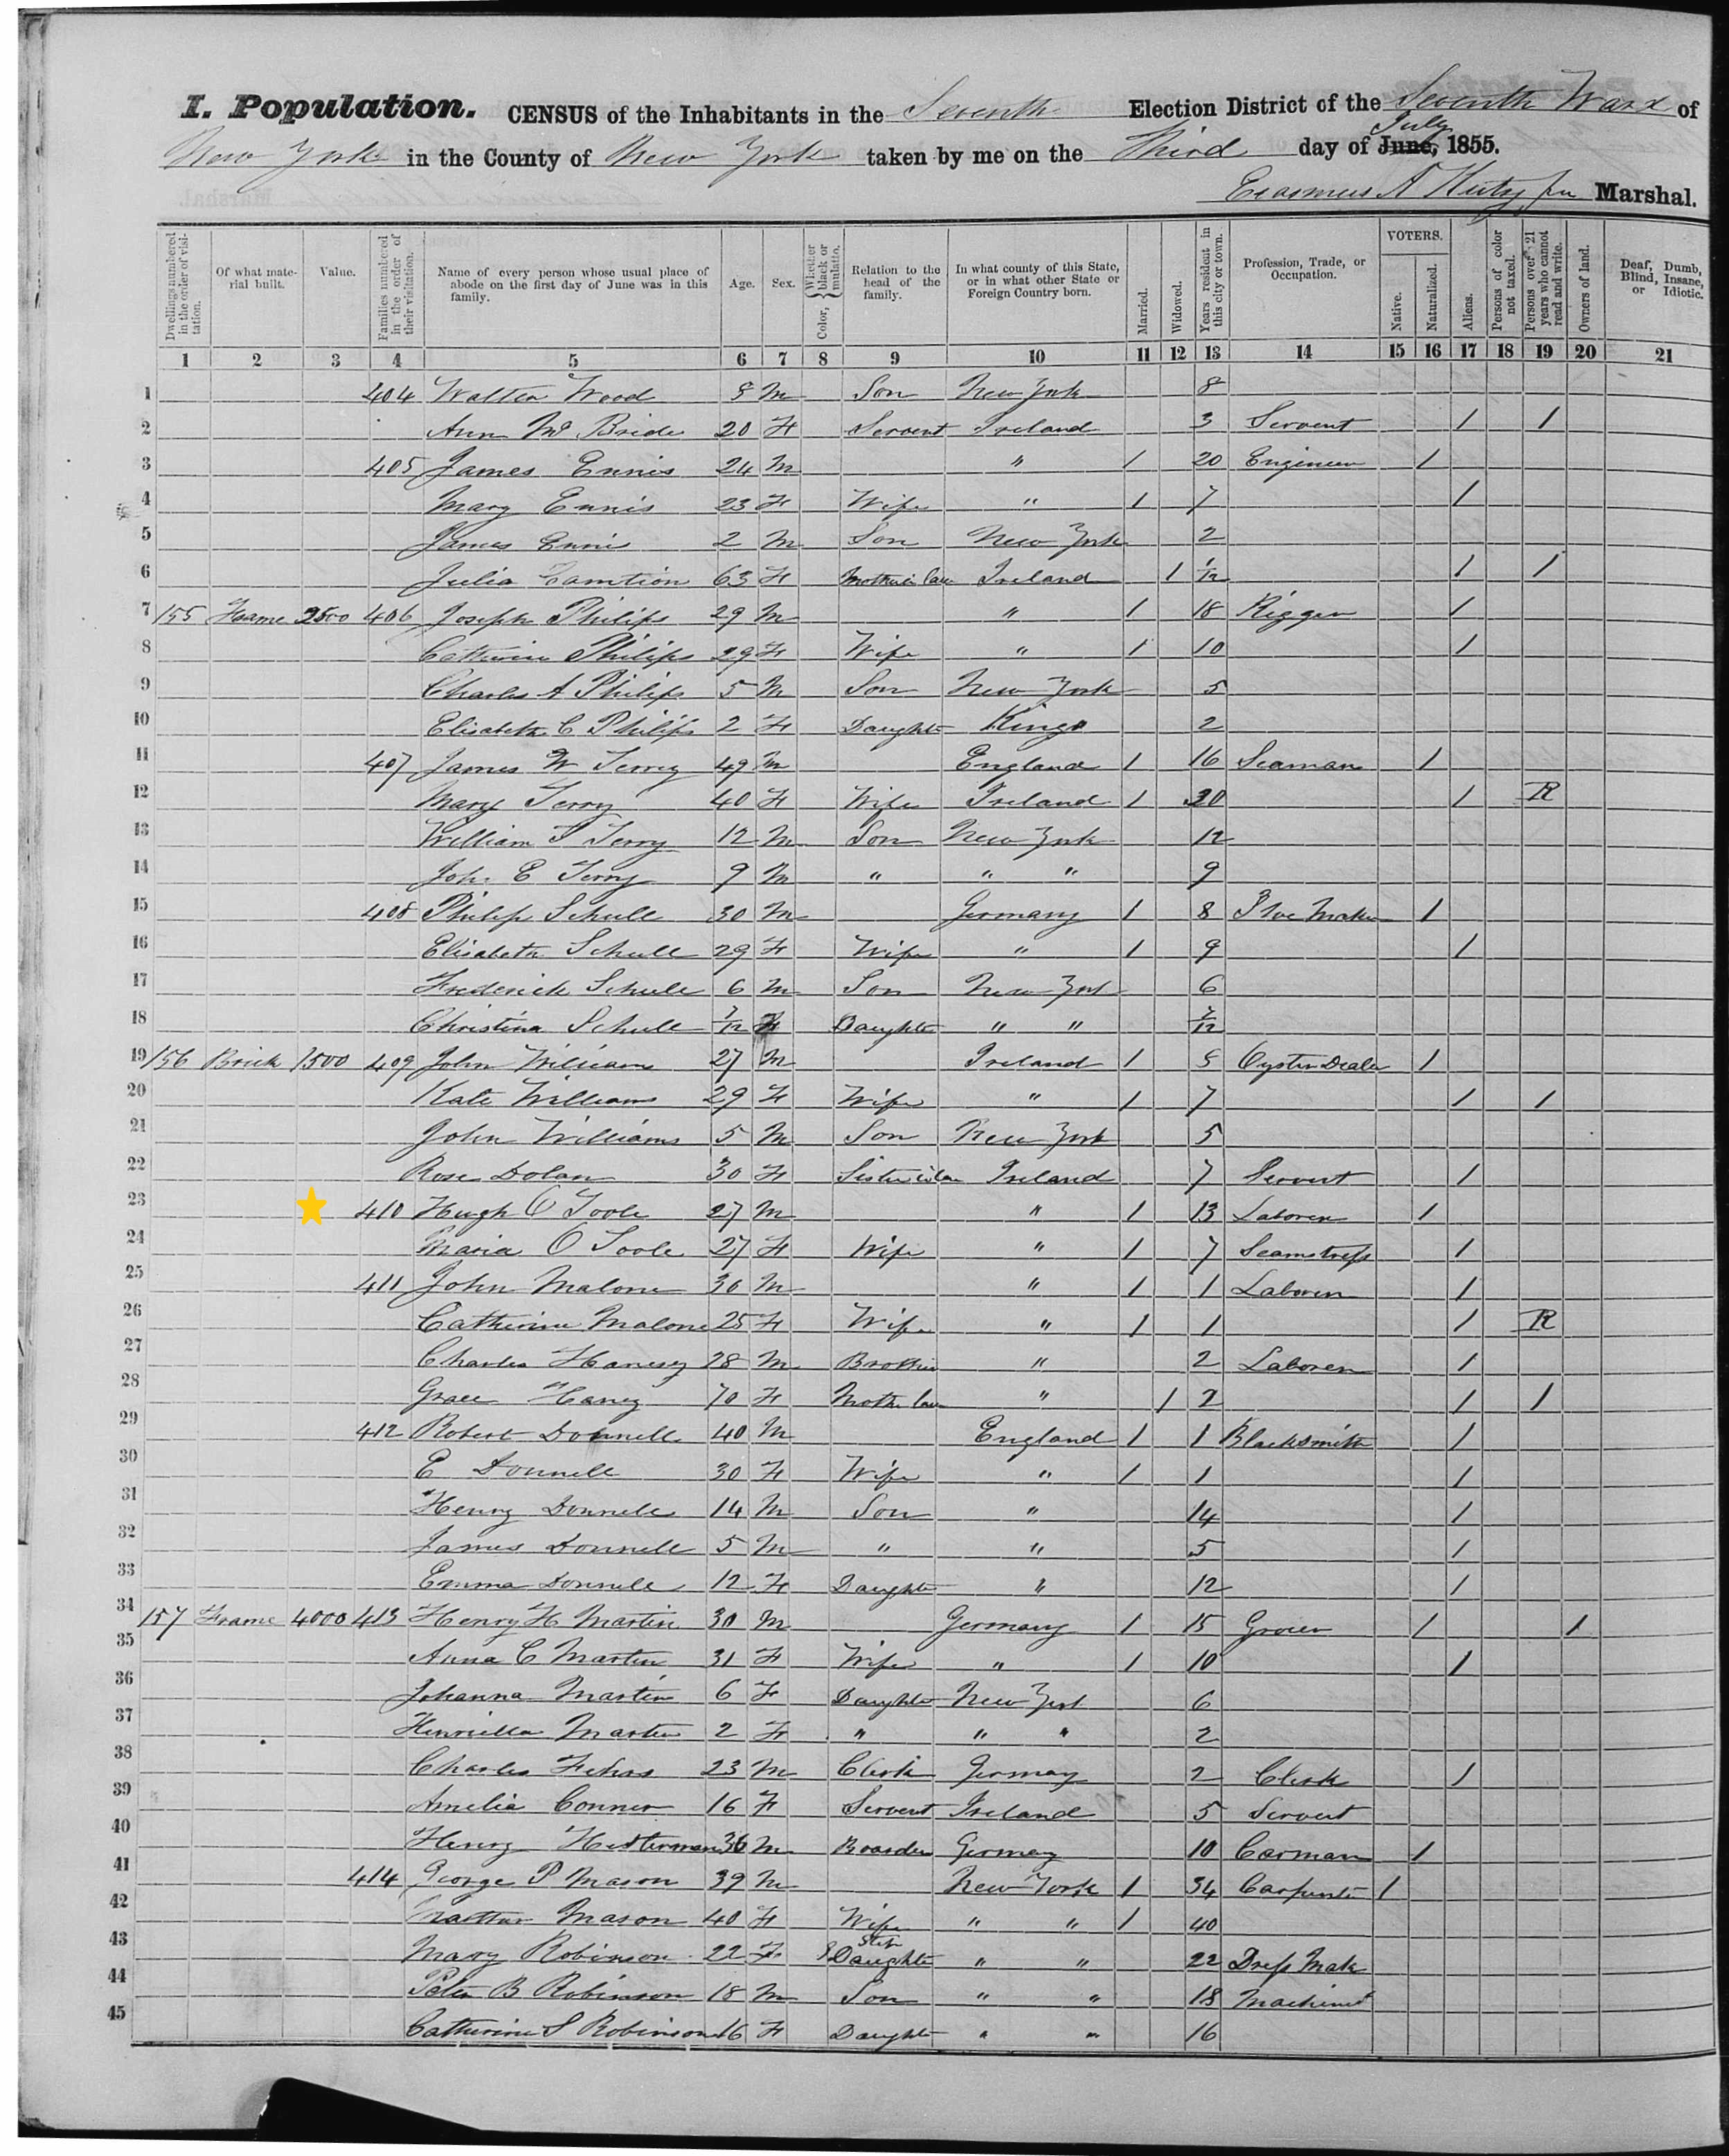 I. Population. CENSUS of the Inhabitants in the Seventh Election District of the Seventh Ward of
New York in the County of New York taken by me on the Third day of June, July 1855.
Erasmus A Marshal.
Dwellings numbered in the order of visitation. Of what material built. Value. Families numbered in the order of their visitation. Name of every person whose usual place of abode on the first day of June was in this family. Age. Sex. Color, { Whether black or mulatto. Relation to the head of the family. In what county of this State, or in what other State or Foreign Country born. Married. Widowed. Years resident in this city or town. Profession, Trade, or Occupation. VOTERS. Native. Naturalized. Aliens. Persons of color not taxed. Persons over 21 years who cannot read and write. Owners of land. Deaf, Dumb, Blind, Insane, or Idiotic.
1 2 3 4 5 6 7 8 9 10 11 12 13 14 15 16 17 18 19 20 21
1 404 Walter Wood 8 M Son New York 8
2 Ann Mc Bride 20 F Servent Ireland 3 Servent 1 1
3 405 James Ennis 24 M " 1 20 Engineer 1
4 Mary Ennis 23 F Wife " 1 7 1
5 James Ennis 2 M Son New York 2
6 Julia 63 F Mother in law Ireland 1 1/12 1 1
7 155 Frame 2500 406 Joseph Philips 29 M " 1 18 Rigger 1
8 Catherine Philips 29 F Wife " 1 10 1
9 Charles A Philips 5 M Son New York 5
10 Elisabeth C Philips 2 F Daughte Kings 2
11 407 James W Terry 49 M England 1 16 Seaman 1
12 Mary Terry 40 F Wife Ireland 1 30 1 R
13 William T Terry 12 M Son New York 12
14 John E Terry 9 M " " " 9
15 408 Philip Schull 30 M Germany 1 8 Shoe Maker 1
16 Elisabeth Schull 29 F Wife " 1 9 1
17 Frederick Schull 6 M Son New York 6
18 Christina Schull 7/12 F Daughte " " 7/12
19 156 Brick 1500 409 John Williams 27 M Ireland 1 8 Oyster Dealer 1
20 Kate Williams 29 F Wife " 1 7 1 1
21 John Williams 5 M Son New York 5
22 Rose Dolan 30 F Sister in law Ireland 7 Servent 1
23 410 Hugh O Toole 27 M " 1 13 Laborer 1
24 Maria O Toole 27 F Wife " 1 7 Seamstress 1
25 411 John Malone 30 M " 1 1 Laborer 1
26 Catherine Malone 25 F Wife " 1 1 1 R
27 Charles 28 M Brother " 2 Laborer 1
28 Grace Haney 70 F Moth law " 1 2 1 1
29 412 Robert Donnell 40 M England 1 1 Blacksmith 1
30 E Donnell 30 F Wife " 1 1 1
31 Henry Donnell 14 M Son " 14 1
32 James Donnell 5 M " " 5 1
33 Emma Donnell 12 F Daughte " 12 1
34 157 Frame 4000 413 Henry H Martin 30 M Germany 1 15 Grocer 1 1
35 Anna C Martin 31 F Wife " 1 10 1
36 Johanna Martin 6 F Daughte New York 6
37 Henrietta Martin 2 F " " " 2
38 Charles 23 M Clerk Germany 2 Clerk 1
39 Amelia Conner 16 F Servent Ireland 5 Servent
40 Henry 36 M Boarder Germany 10 Carman 1
41 414 George P Mason 39 M New York 1 34 Carpente 1
42 Mason 40 F Wife " " 1 40
43 Mary Robinson 22 F Step Daughte " " 22 Dress Mak
44 Peter B Robinson 18 M Son " " 18 Machinist
45 Catherine S Robinson 16 F Daughte " " 16